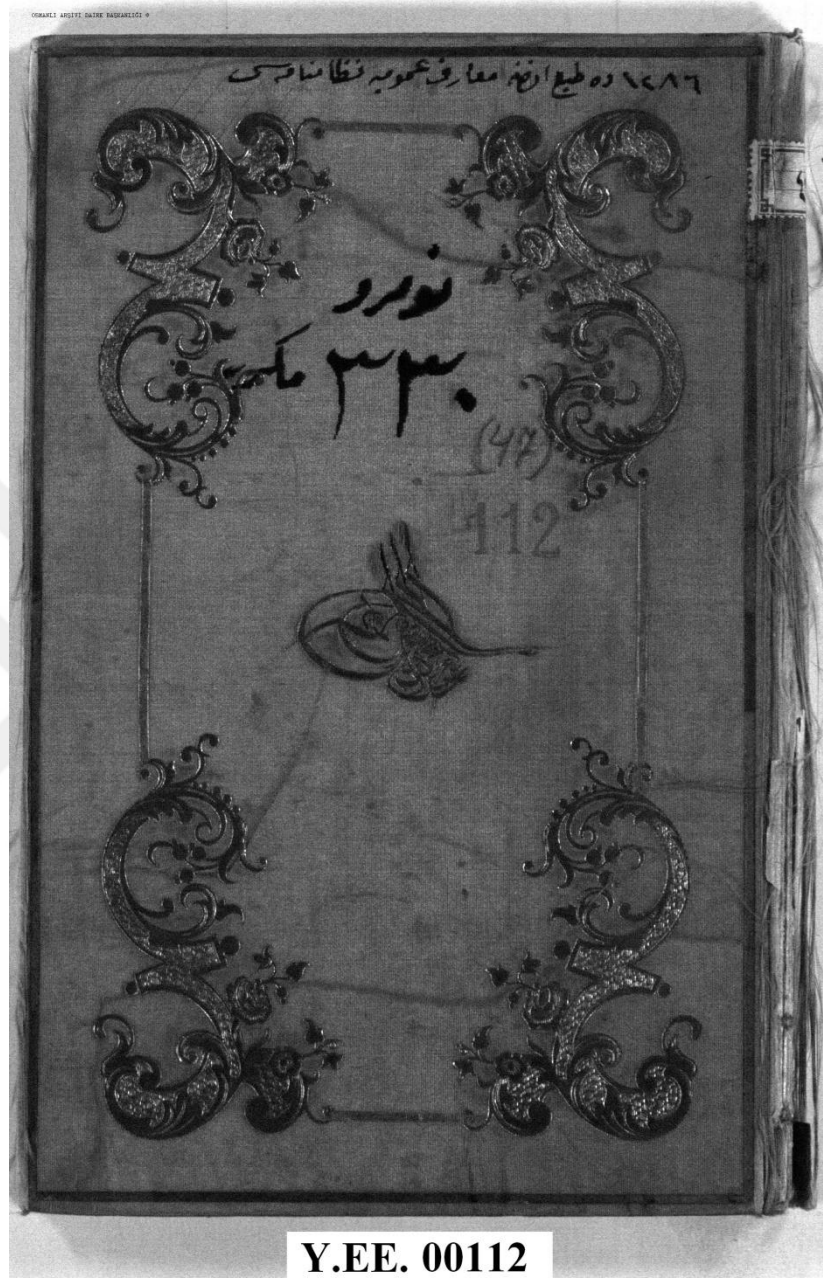 OSMANLI ARŞİVİ DAİRE BAŞKANLIĞI ©
١٢٨٦ ده طبع اولنان معارف عموميه نظامنامه سى
نومرو
٣٣٠
(47)
112
Y.EE. 00112